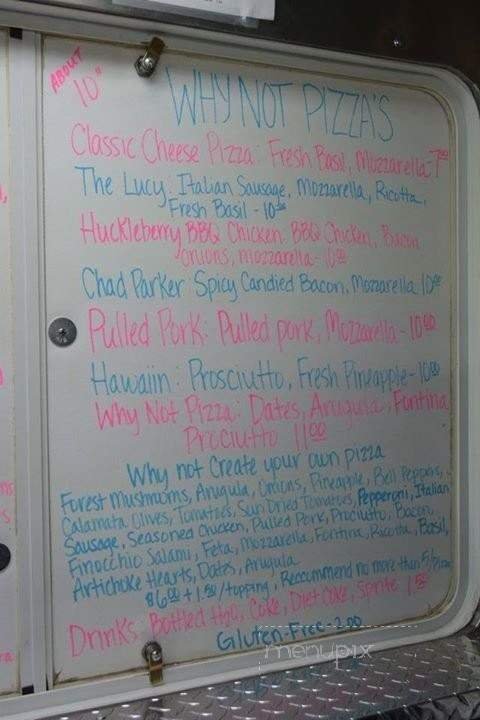 ABOUT
10"
WHY NOT PIZZA'S
Classic Cheese Pizza: Fresh Basil, Mozzarella - 7.00
The Lucy: Italian Sausage, Mozzarella, Ricotta,
Fresh Basil - 10.00
Huckleberry BBQ Chicken: BBQ Chicken, Bacon
onions, mozzarella - 10.00
Chad Parker: Spicy Candied Bacon, Mozzarella 10.00
Pulled Pork: Pulled pork, Mozzarella - 10.00
Hawaiin: Prosciutto, Fresh Pineapple - 10.00
Why Not Pizza: Dates, Arugula, Fontina
Prociutto 11.00
Why not Create your own pizza
Forest Mushrooms, Arugula, Onions, Pineapple, Bell Peppers,
Calamata Olives, Tomatoes, Sun Dried Tomatoes, Pepperoni, Italian
Sausage, Seasoned Chicken, Pulled Pork, Prociutto, Bacon,
Finocchio Salami, Feta, Mozzarella, Fontina, Ricotta, Basil,
Artichoke Hearts, Dates, Arugula
$6.00 + 1.00/topping, Reccommend no more than 5/
Drinks: Bottled H2O, Coke, Diet Coke, Sprite 1.00
Gluten-Free - 2.00
menupix